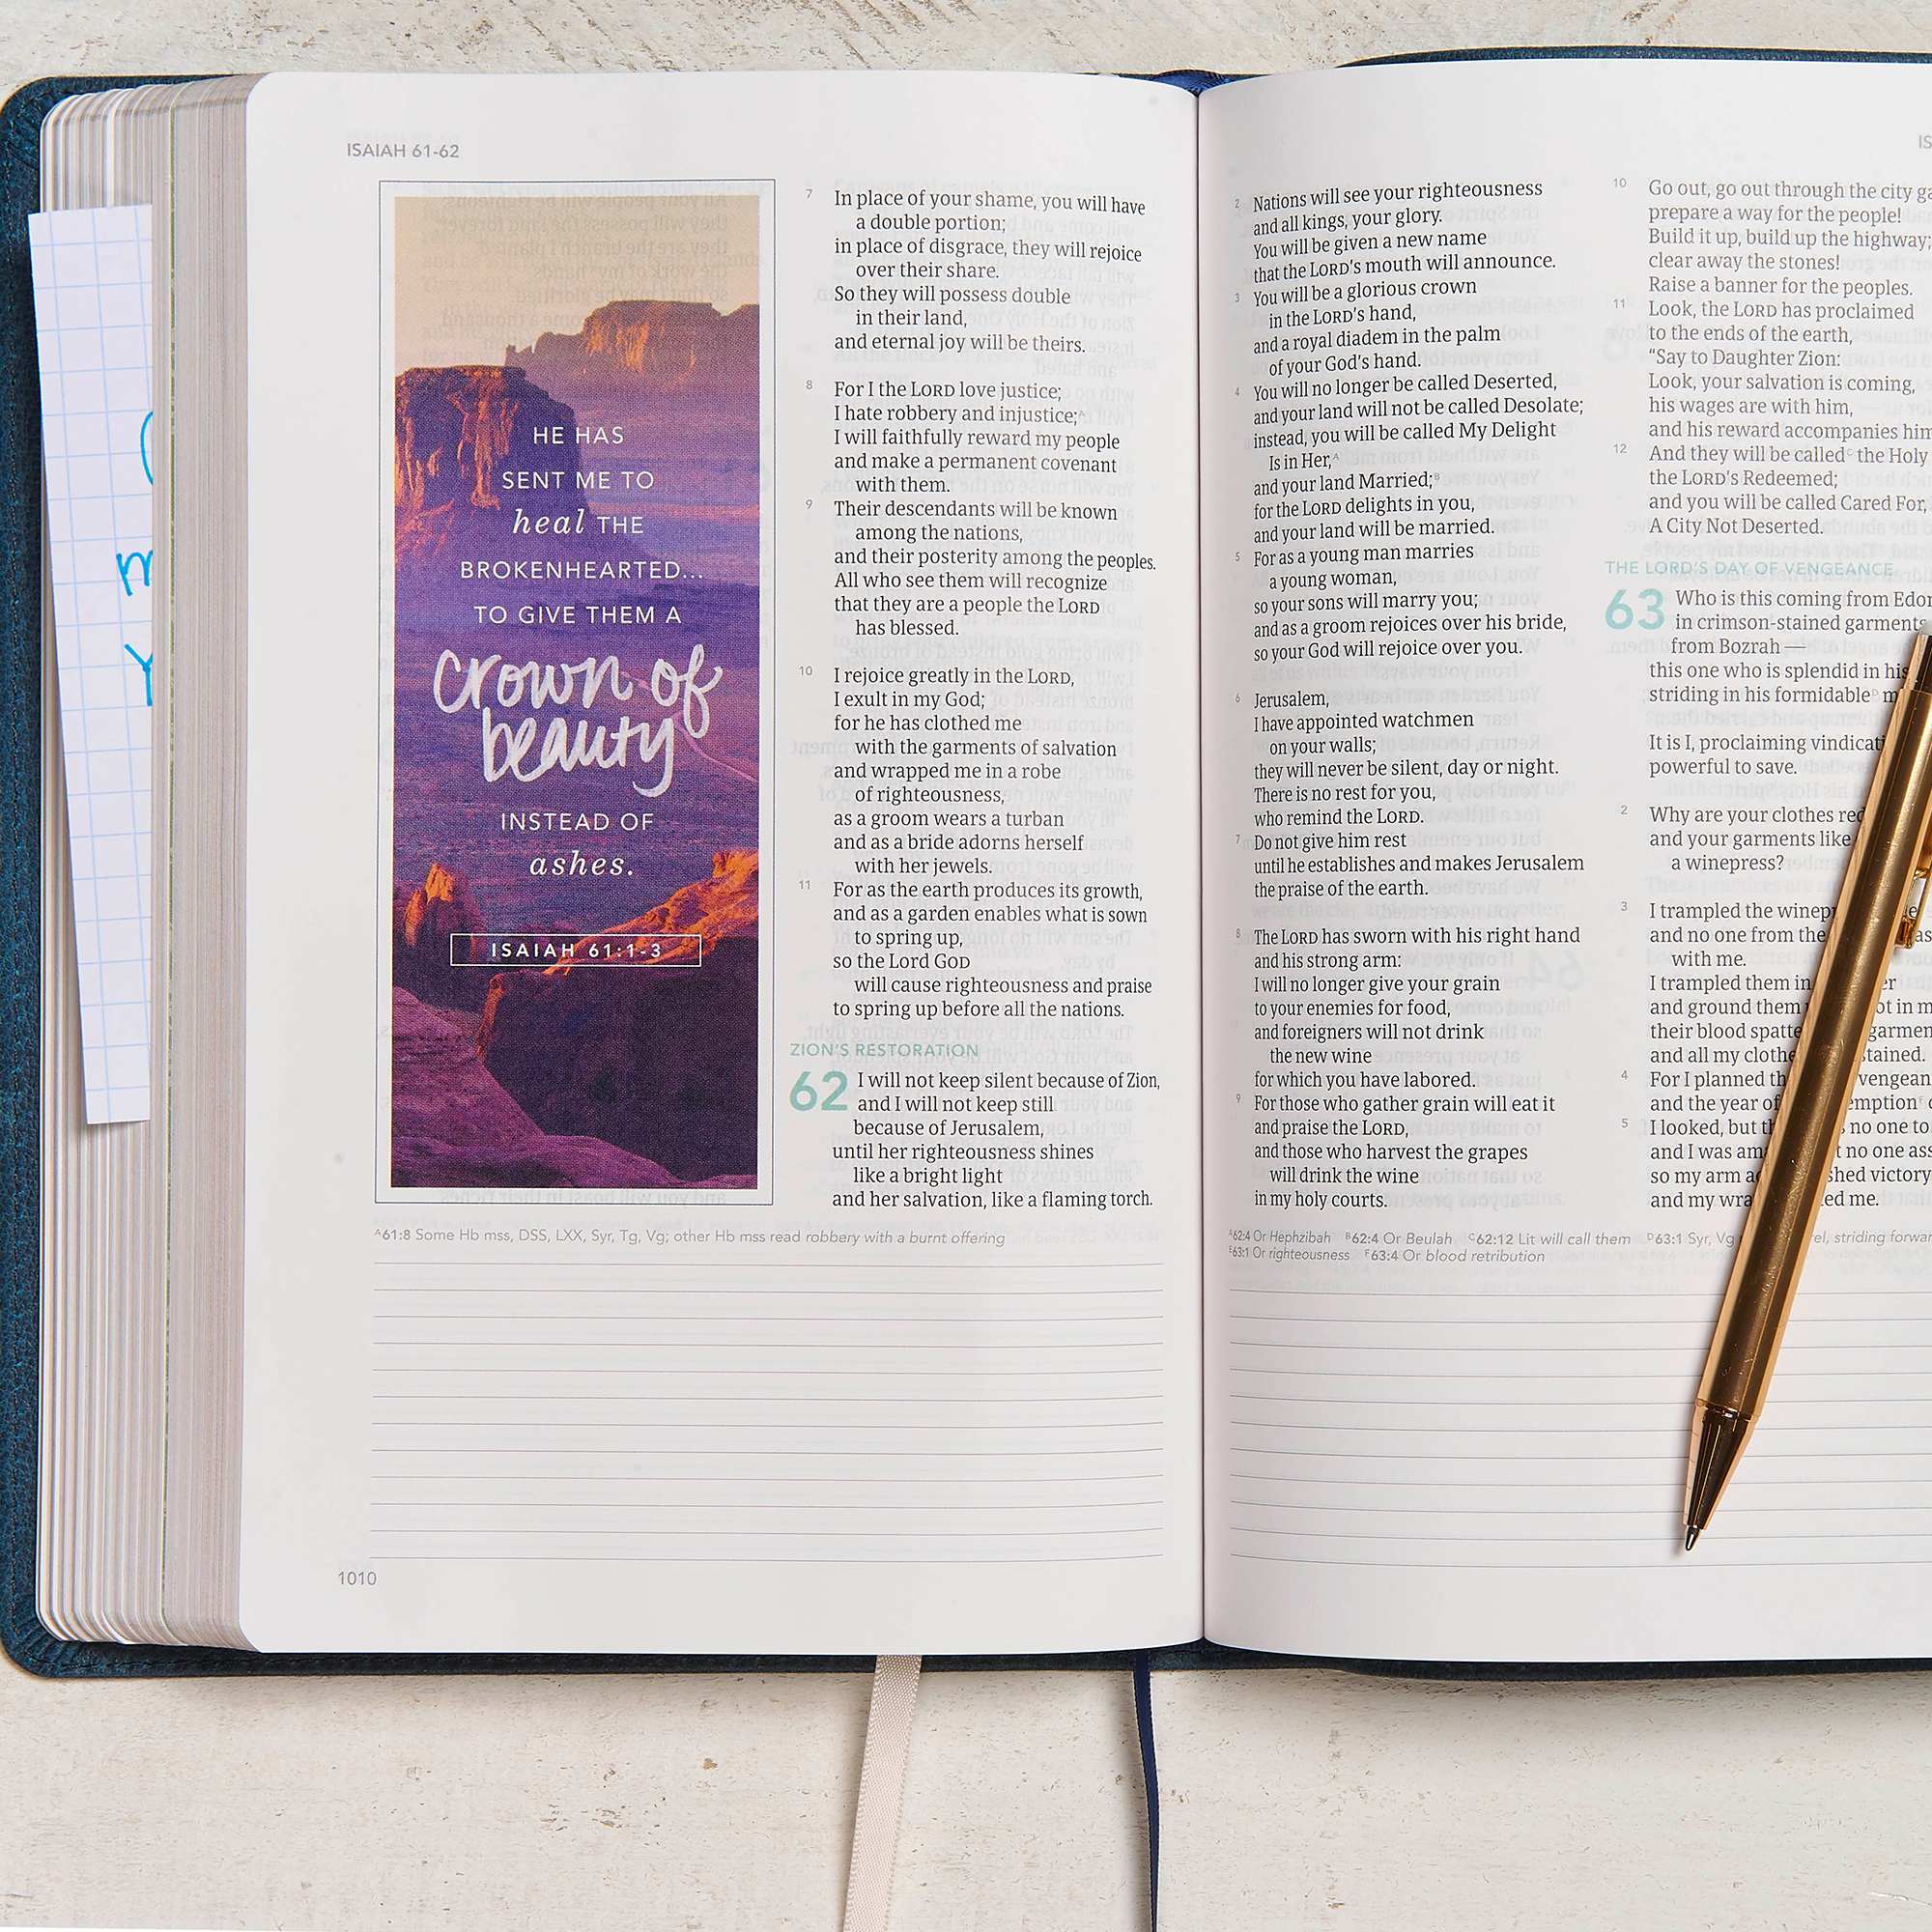 ISAIAH 61-62
HE HAS
SENT ME TO
heal THE
BROKENHEARTED...
TO GIVE THEM A
crown of
beauty
INSTEAD OF
ashes.
ISAIAH 61:1-3
7 In place of your shame, you will have
a double portion;
in place of disgrace, they will rejoice
over their share.
So they will possess double
in their land,
and eternal joy will be theirs.
8 For I the LORD love justice;
I hate robbery and injustice;A
I will faithfully reward my people
and make a permanent covenant
with them.
9 Their descendants will be known
among the nations,
and their posterity among the peoples.
All who see them will recognize
that they are a people the LORD
has blessed.
10 I rejoice greatly in the LORD,
I exult in my God;
for he has clothed me
with the garments of salvation
and wrapped me in a robe
of righteousness,
as a groom wears a turban
and as a bride adorns herself
with her jewels.
11 For as the earth produces its growth,
and as a garden enables what is sown
to spring up,
so the Lord GOD
will cause righteousness and praise
to spring up before all the nations.
ZION'S RESTORATION
62 I will not keep silent because of Zion,
and I will not keep still
because of Jerusalem,
until her righteousness shines
like a bright light
and her salvation, like a flaming torch.
A61:8 Some Hb mss, DSS, LXX, Syr, Tg, Vg; other Hb mss read robbery with a burnt offering
1010
2 Nations will see your righteousness
and all kings, your glory.
You will be given a new name
that the LORD's mouth will announce.
3 You will be a glorious crown
in the LORD's hand,
and a royal diadem in the palm
of your God's hand.
4 You will no longer be called Deserted,
and your land will not be called Desolate;
instead, you will be called My Delight
Is in Her,A
and your land Married;B
for the LORD delights in you,
and your land will be married.
5 For as a young man marries
a young woman,
so your sons will marry you;
and as a groom rejoices over his bride,
so your God will rejoice over you.
6 Jerusalem,
I have appointed watchmen
on your walls;
they will never be silent, day or night.
There is no rest for you,
who remind the LORD.
7 Do not give him rest
until he establishes and makes Jerusalem
the praise of the earth.
8 The LORD has sworn with his right hand
and his strong arm:
I will no longer give your grain
to your enemies for food,
and foreigners will not drink
the new wine
for which you have labored.
9 For those who gather grain will eat it
and praise the LORD,
and those who harvest the grapes
will drink the wine
in my holy courts.
10 Go out, go out through the city
prepare a way for the people!
Build it up, build up the highway;
clear away the stones!
Raise a banner for the peoples.
11 Look, the LORD has proclaimed
to the ends of the earth,
"Say to Daughter Zion:
Look, your salvation is coming,
his wages are with him,
and his reward accompanies him
12 And they will be calledC the Holy
the LORD's Redeemed;
and you will be called Cared For,
A City Not Deserted.
THE LORD'S DAY OF VENGEANCE
63 Who is this coming from
in crimson-stained garments
from Bozrah —
this one who is splendid in his
striding in his formidableD
It is I, proclaiming
powerful to save.
2 Why are your clothes
and your garments like
a winepress?
3 I trampled the
and no one from the
with me.
I trampled them in
and ground them in
their blood
and all my
4 For I planned
and the year of
5 I looked, but no one to
and I was no one
so my arm victory
and my me.
A62:4 Or Hephzibah B62:4 Or Beulah C62:12 Lit will call them D63:1 Syr, Vg striding
E63:1 Or righteousness F63:4 Or blood retribution